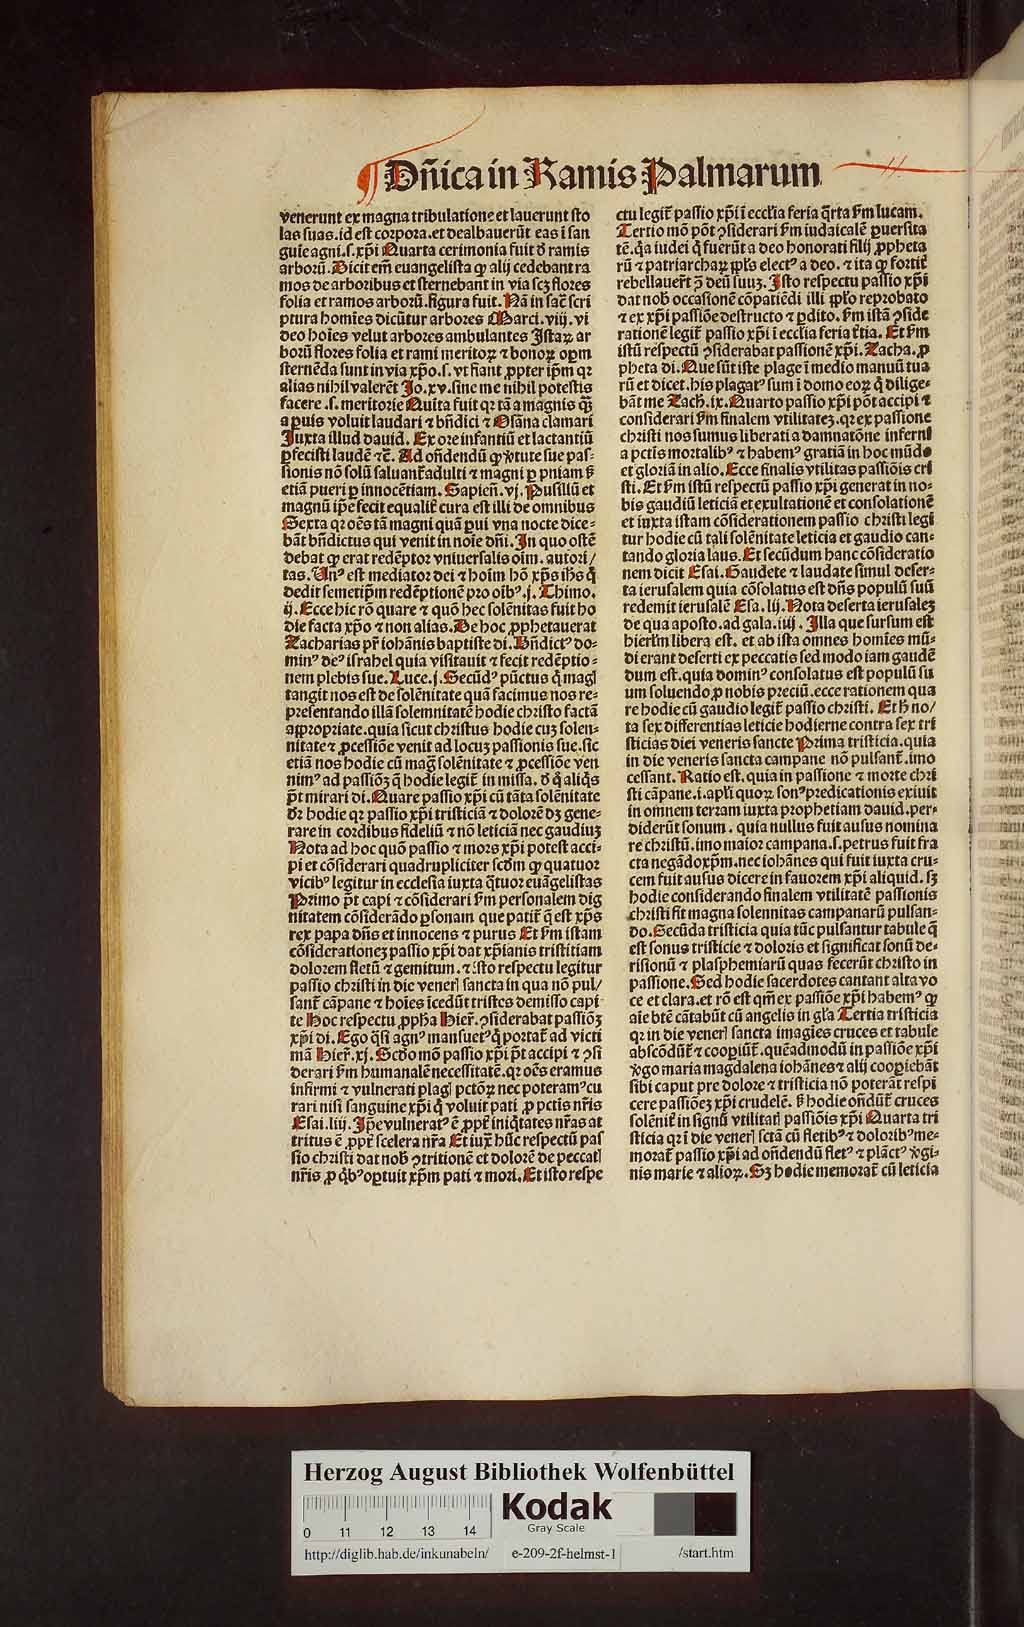 Dñica in Ramis Palmarum
venerunt ex magna tribulatione et lauerunt sto
las suas. id est corpora. et dealbauerũt eas ĩ san
guie agni. s. xp̃i Quarta cerimonia fuit ð ramis
arborũ. Dicit em̃ euangelista ꝙ alij cedebant ra
mos de arboribus et sternebant in via scꝫ flores
folia et ramos arborũ. figura fuit. Nã in sac̃ scri
ptura homĩes dicũtur arbores Marci. viij. vi
deo hoĩes velut arbores ambulantes Istaꝝ ar
borũ flores folia et rami meritoꝝ ⁊ bonoꝝ oꝑm
sternẽda sunt in via xp̃o. s. vt fiant ꝓpter ip̃m qꝛ
alias nihil valerẽt Io. xv. sine me nihil potestis
facere. s. meritorie Quĩta fuit qꝛ tã a magnis q̃ꝫ
a ꝑuis voluit laudari ⁊ bñdici ⁊ Osãna clamari
Iuxta illud dauid. Ex ore infantiũ et lactantiũ
ꝑfecisti laudẽ ⁊c̃. Ad oñdendũ ꝙ ꝟtute sue pas-
sionis nõ solũ saluant̃ adulti ⁊ magni ꝑ pniam ß
etiã pueri ꝑ innocẽtiam. Sapieñ. vj. Pusillũ et
magnũ ip̃e fecit equalit̃ cura est illi de omnibus
Sexta qꝛ oẽs tã magni quã ꝑui vna nocte dice-
bãt bñdictus qui venit in noĩe dñi. In quo ostẽ
debat ꝙ erat redẽptor vniuersalis oĩm. autori/
tas. Vnꝰ est mediator dei ⁊ hoĩm hõ xp̃s ih̃s q̃
dedit semetip̃m redẽptionẽ pro oibꝰ. j. Thimo.
ij. Ecce hic rõ quare ⁊ quõ hec solẽnitas fuit ho
die facta xp̃o ⁊ non alias. De hoc ꝓphetauerat
Zacharias pr̃ iohãnis baptiste di. Bñdictꝰ do-
minꝰ deꝰ israhel quia visitauit ⁊ fecit redẽptio-
nem plebis sue. Luce. j. Secũdꝰ pũctus q̃ mag
tangit nos est de solẽnitate quã facimus nos re-
presentando illã solemnitatẽ hodie christo factã
aꝓpropriate. quia sicut christus hodie cuꝫ solen-
nitate ⁊ ꝓcessiõe venit ad locuꝫ passionis sue. sic
etiã nos hodie cũ mag̃ solẽnitate ⁊ ꝓcessiõe ven
nimꝰ ad passiõꝫ q̃ hodie legit̃ in missa. ð q̃ aliq̃s
p̃t mirari di. Quare passio xp̃i cũ tãta solẽnitate
dr̃ hodie qꝛ passio xp̃i tristiciã ⁊ dolorẽ dꝫ gene-
rare in cordibus fideliũ ⁊ nõ leticiã nec gaudiuꝫ
Nota ad hoc quõ passio ⁊ mors xp̃i potest acci-
pi et cõsiderari quadrupliciter scðm ꝙ quatuor
vicibꝰ legitur in ecclesia iuxta q̃tuor euãgelistas
Primo p̃t capi ⁊ cõsiderari ẜm personalem dig
nitatem cõsiderãdo ꝑsonam que patit̃ q̃ est xp̃s
rex papa dñs et innocens ⁊ purus Et ẜm istam
cõsiderationeꝫ passio xp̃i dat xp̃ianis tristitiam
dolorem fletũ ⁊ gemitum. ⁊ isto respectu legitur
passio christi in die vener sancta in qua nõ pul/
sant̃ cãpane ⁊ hoĩes ĩcedũt tristes demisso capi
te Hoc respectu ꝓpha Hier̃. ꝯsiderabat passiõꝫ
xp̃i di. Ego q̃si agnꝰ mansuetꝰ q̃ portat̃ ad victi
mã Hier̃. xj. Scðo mõ passio xp̃i p̃t accipi ⁊ ꝯsi
derari ẜm humanalẽ necessitatẽ. qꝛ oẽs eramus
infirmi ⁊ vulnerati plag pctõꝝ nec poteramꝰ cu
rari nisi sanguine xp̃i q̃ voluit pati ꝓ pctis nr̃is
Esai. liij. Ip̃e vulneratꝰ ẽ ꝓpt̃ iniq̃tates nr̃as at
tritus ẽ ꝓpt̃ scelera nr̃a Et iuxͣ hũc respectũ pas
sio christi dat nob̃ ꝯtritionẽ et dolorẽ de peccat
nr̃is ꝓ q̃bꝰ oꝑtuit xp̃m pati ⁊ mori. Et isto respe
ctu legit̃ passio xp̃i ĩ eccl̃ia feria q̃rta ẜm lucam.
Tertio mõ põt ꝯsiderari ẜm iudaicalẽ ꝑuersita
tẽ. q̃a iudei q̃ fuerũt a deo honorati filij ꝓpheta
rũ ⁊ patriarchaꝝ ꝓpl̃s electꝰ a deo. ⁊ ita ꝙ fortit̃
rebellauer̃t ꝯ̃ deũ suuꝫ. Isto respectu passio xp̃i
dat nob̃ occasionẽ cõpatiẽdi illi ꝓpl̃o reprobato
⁊ ex xp̃i passiõe destructo ⁊ ꝑdito. ẜm istã ꝯside
rationẽ legit̃ passio xp̃i ĩ eccl̃ia feria t̃tia. Et ẜm
istũ respectũ ꝯsiderabat passionẽ xp̃i. Zacha. ꝓ
pheta di. Que sũt iste plage ĩ medio manuũ tua
rũ et dicet. his plagatꝰ sum ĩ domo eoꝝ q̃ dilige-
bãt me Zach̃. ix. Quarto passio xp̃i põt accipi ⁊
considerari ẜm finalem vtilitateꝫ. qꝛ ex passione
christi nos sumus liberati a damnatõne inferni
a pctis mortalibꝰ ⁊ habemꝰ gratiã in hoc mũdo
et gloriã in alio. Ecce finalis vtilitas passiõis cri
sti. Et ẜm istũ respectũ passio xp̃i generat in no-
bis gaudiũ leticiã et exultationẽ et consolationẽ
et iuxta istam cõsiderationem passio christi legi
tur hodie cũ tali solẽnitate leticia et gaudio can-
tando gloria laus. Et secũdum hanc cõsideratio
nem dicit Esai. Gaudete ⁊ laudate simul deser-
ta ierusalem quia cõsolatus est dñs populũ suũ
redemit ierusalẽ Esa. lij. Nota deserta ierusaleꝫ
de qua aposto. ad gala. iiij. Illa que sursum est
hierl̃m libera est. et ab ista omnes homĩes mũ-
di erant deserti ex peccatis sed modo iam gaudẽ
dum est. quia dominꝰ consolatus est populũ su
um soluendo ꝓ nobis preciũ. ecce rationem qua
re hodie cũ gaudio legit̃ passio christi. Et h̃ no/
ta sex differentias leticie hodierne contra sex tri
sticias diei veneris sancte Prima tristicia. quia
in die veneris sancta campane nõ pulsant̃. imo
cessant. Ratio est. quia in passione ⁊ morte chri
sti cãpane. i. apl̃i quoꝝ sonꝰ predicationis exiuit
in omnem terram iuxta prophetiam dauid. per-
diderũt sonum. quia nullus fuit ausus nomina
re christũ. imo maior campana. s. petrus fuit fra
cta negãdo xp̃m. nec iohãnes qui fuit iuxta cru-
cem fuit ausus dicere in fauorem xp̃i aliquid. sꝫ
hodie considerando finalem vtilitatẽ passionis
christi fit magna solennitas campanarũ pulsan-
do. Secũda tristicia quia tũc pulsantur tabule q̃
est sonus tristicie ⁊ doloris et significat sonũ de-
risionũ ⁊ plasphemiarũ quas fecerũt christo in
passione. Sed hodie sacerdotes cantant alta vo
ce et clara. et rõ est qm̃ ex passiõe xp̃i habemꝰ ꝙ
aĩe btẽ cãtabũt cũ angelis in gl̃a Tertia tristicia
qꝛ in die vener sancta imagĩes cruces et tabule
abscõdũt̃ ⁊ cooꝑiũt̃. quẽadmodũ in passiõe xp̃i
ꝟgo maria magdalena iohãnes ⁊ alij cooꝑiebãt
sibi caput pre dolore ⁊ tristicia nõ poterãt respi
cere passiõeꝫ xp̃i crudelẽ. ß hodie oñdũt̃ cruces
solẽnit̃ in signũ vtilitat passiõis xp̃i Quarta tri
sticia qꝛ ĩ die vener sctã cũ fletibꝰ ⁊ doloribꝰ me-
morat̃ passio xp̃i ad oñdendũ fletꝰ ⁊ plãctꝰ ꝟgi-
nis marie ⁊ alioꝝ. Sꝫ hodie memorat̃ cũ leticia
Herzog August Bibliothek Wolfenbüttel
0 11 12 13 14
Kodak
Gray Scale
http://diglib.hab.de/inkunabeln/ e-209-2f-helmst-1 /start.htm